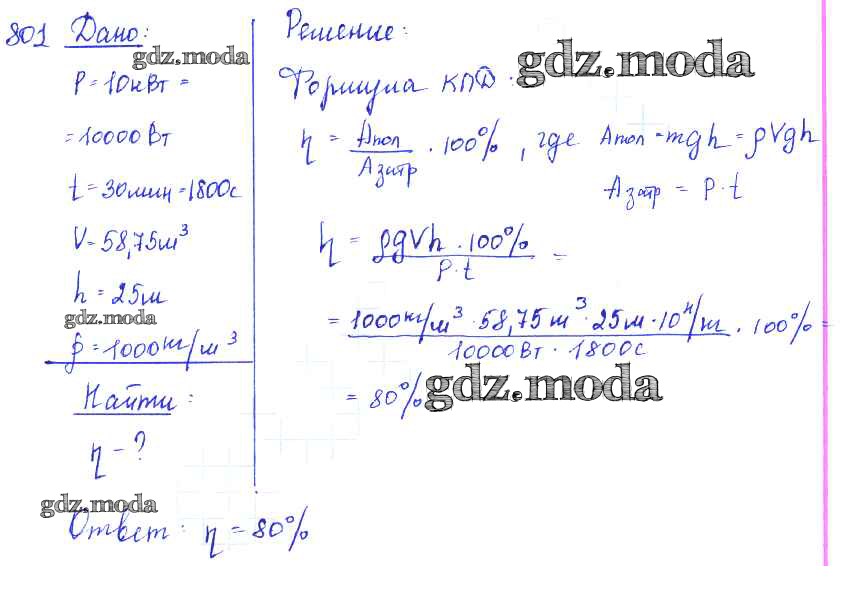 801 Дано:
gdz.moda
P = 10кВт =
= 10000 Вт
t = 30мин = 1800с
V = 58,75м³
h = 25м
gdz.moda
ρ = 1000кг/м³
Найти:
η - ?
gdz.moda
Решение:
gdz.moda
Формула КПД:
η = Апол / Азатр · 100%, где Апол = mgh = ρVgh
Азатр = P·t
η = ρgVh · 100% / P·t =
= 1000кг/м³ · 58,75м³ · 25м · 10н/кг / 10000Вт · 1800с · 100% =
= 80%
gdz.moda
Ответ: η = 80%